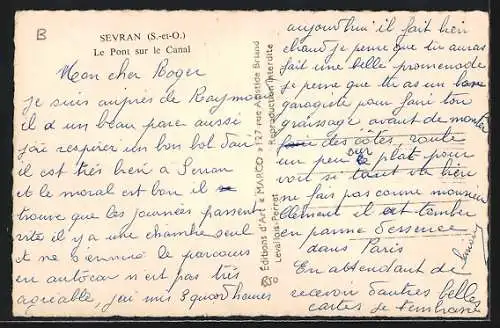 B
SEVRAN (S.-et-O.)
Le Pont sur le Canal
Mon cher Roger
je suis auprès de Raymond
il a un beau parc aussi
j'ai respirer un bon bol d'air
il est très bien à Sevran
et le moral est bon il
trouve que les journées passent
vite il y a une chambre seul
et ne s'ennuie le parcours
en autocar n'est pas très
agréable, j'ai mis 3 quart d'heures
Éditions d'Art "MARCO" 127 rue Aristide Briand
Levallois-Perret
Reproduction Interdite
aujourd'hui il fait bien
chaud je pense que tu auras
fait une belle promenade
je pense que tu as un bon
garagiste pour faire ton
graissage avant de monter
des côtes, route
un peu sur le plat pour
voir si tout va bien
ne fais pas comme monsieur
Clément il est tomber
en panne d'essence
dans Paris
En attendant de
recevoir d'autres belles
cartes je t'embrasse